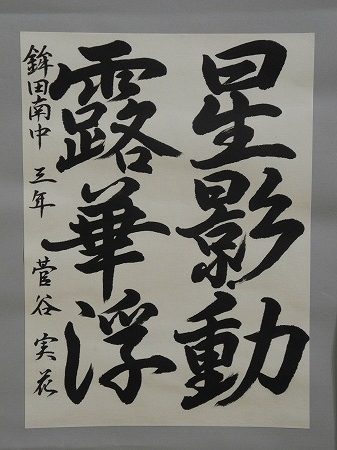 星影動
露華浮
鉾田南中 三年 菅谷実花